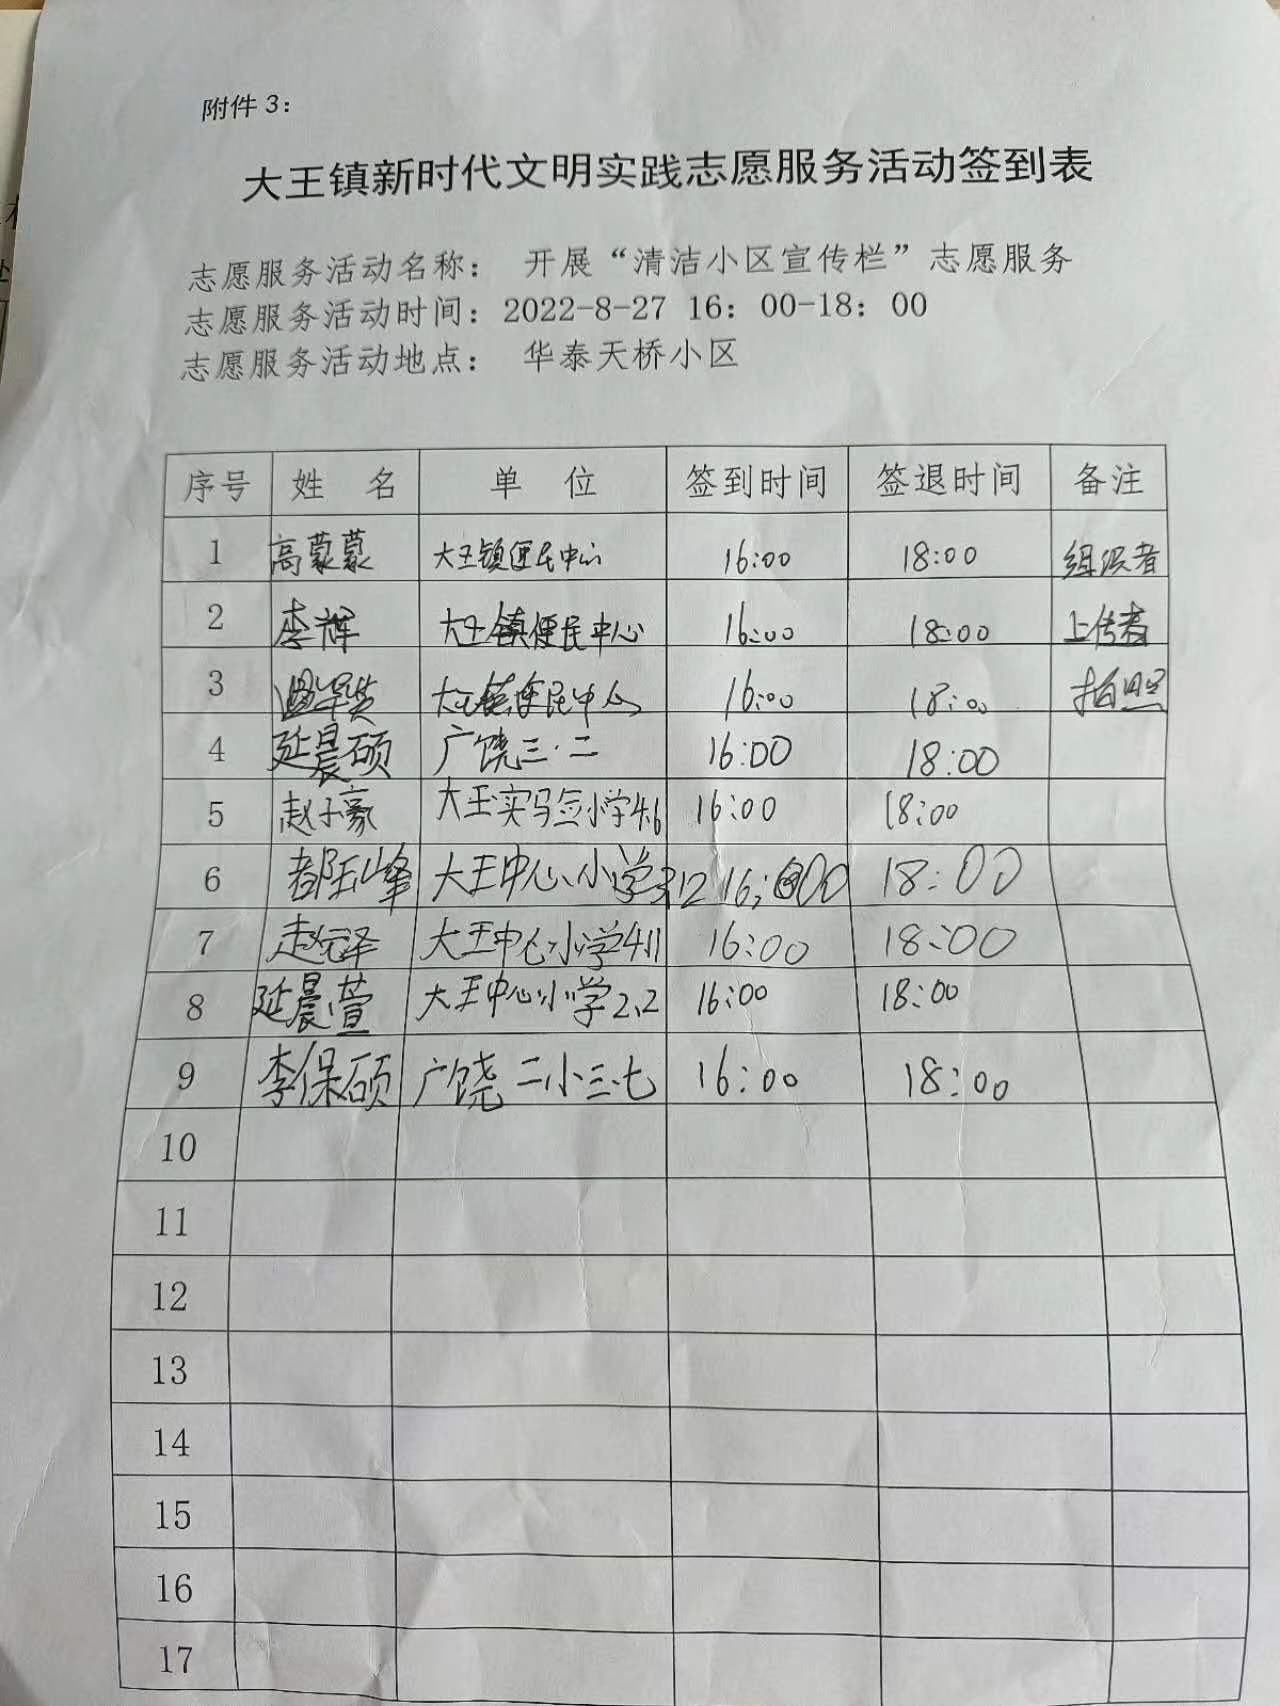 附件 3：
大王镇新时代文明实践志愿服务活动签到表
志愿服务活动名称： 开展“清洁小区宣传栏”志愿服务
志愿服务活动时间：2022-8-27 16：00-18：00
志愿服务活动地点： 华泰天桥小区
序号 姓 名 单 位 签到时间 签退时间 备注
1 高蒙蒙 大王镇便民中心 16:00 18:00 组织者
2 李辉 大王镇便民中心 16:00 18:00 上传者
3 大王镇便民中心 16:00 18:00 拍照
4 延晨硕 广饶三·二 16:00 18:00
5 赵子豪 大王实验小学4.6 16:00 18:00
6 都玉峰 大王中心小学 16:00 18:00
7 大王中心小学4.11 16:00 18:00
8 延晨萱 大王中心小学2.2 16:00 18:00
9 李保硕 广饶二小三.七 16:00 18:00
10
11
12
13
14
15
16
17